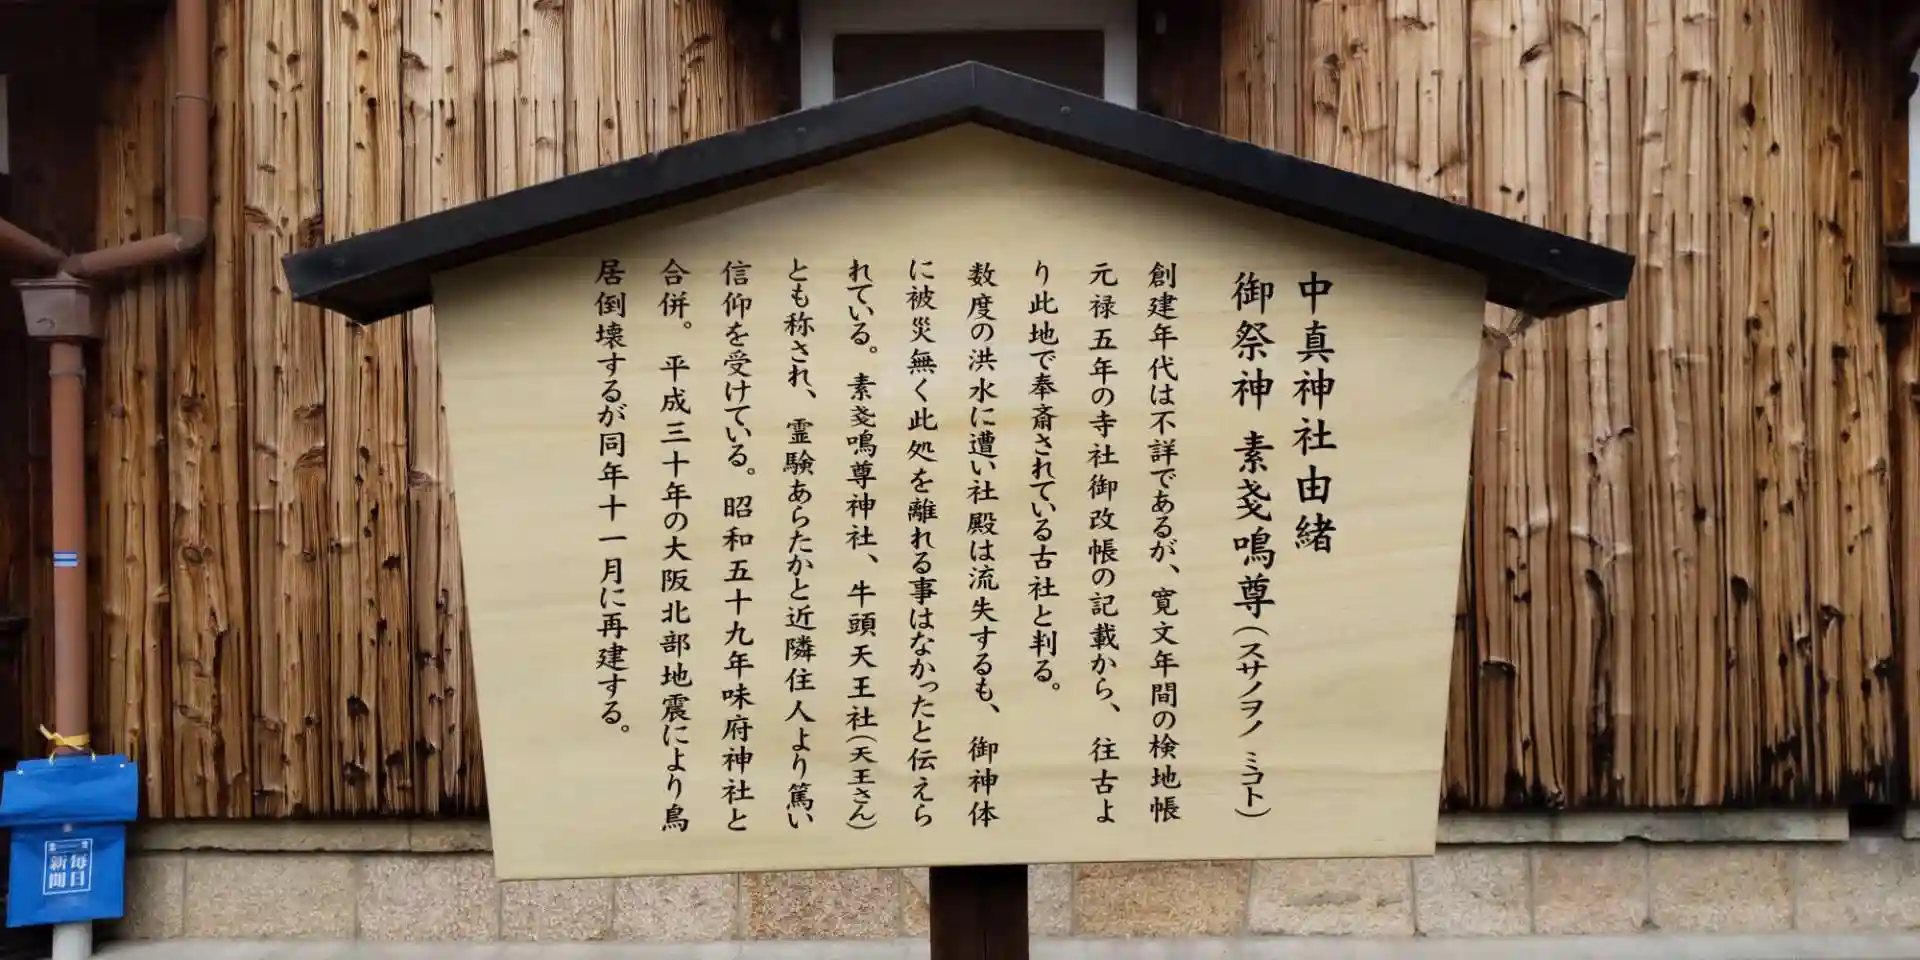 中真神社由緒
御祭神 素戔鳴尊(スサノヲノ ミコト)
創建年代は不詳であるが、寛文年間の検地帳
元禄五年の寺社御改帳の記載から、往古よ
り此地で奉斎されている古社と判る。
数度の洪水に遭い社殿は流失するも、御神体
に被災無く此処を離れる事はなかったと伝えら
れている。素戔鳴尊神社、牛頭天王社(天王さん)
とも称され、霊験あらたかと近隣住人より篤い
信仰を受けている。昭和五十九年味府神社と
合併。 平成三十年の大阪北部地震により鳥
居倒壊するが同年十一月に再建する。
毎日
新聞